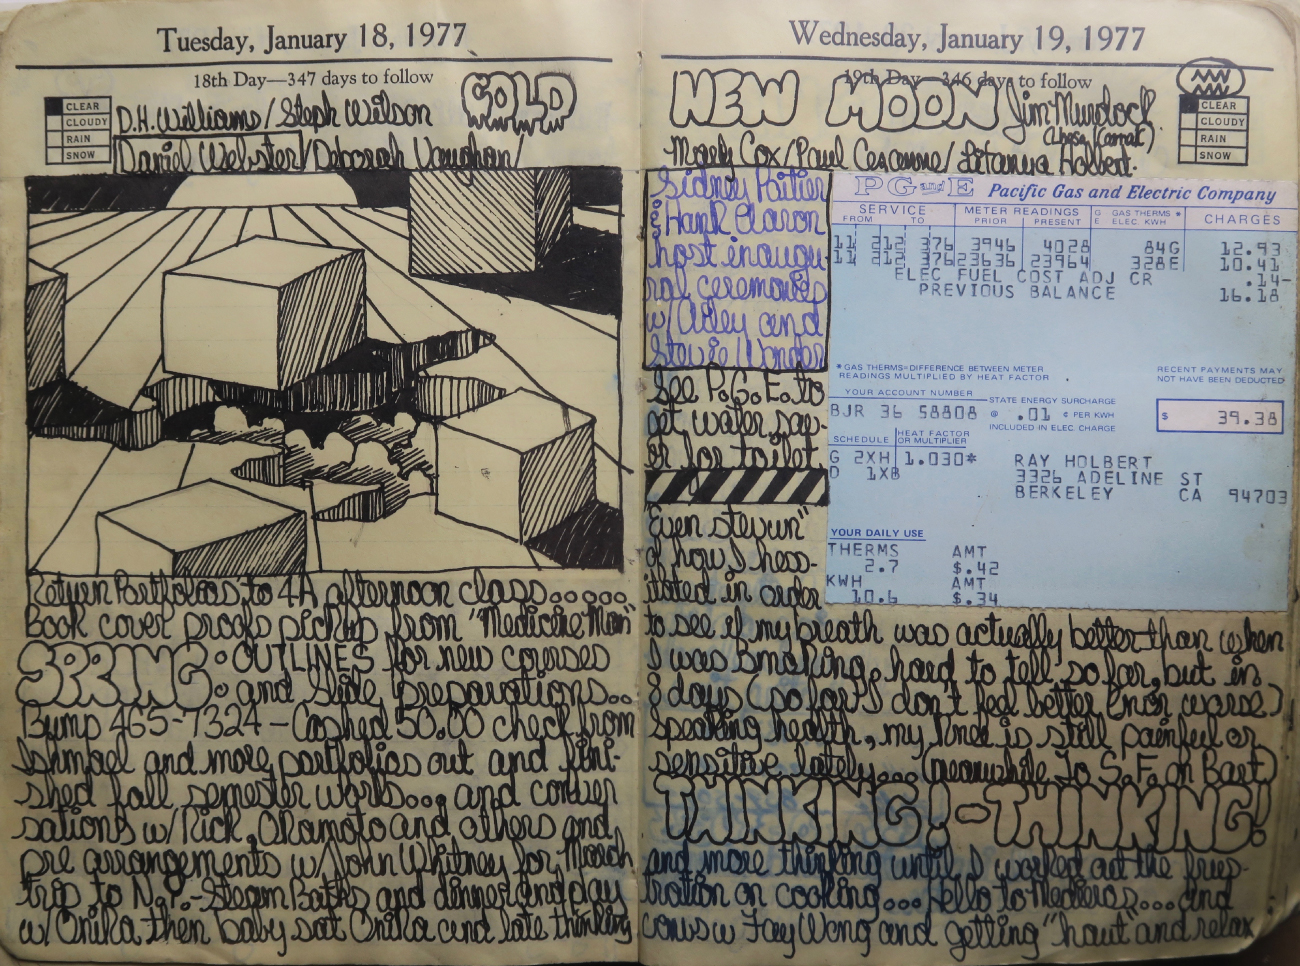 Tuesday, January 18, 1977
18th Day—347 days to follow
CLEAR
CLOUDY
RAIN
SNOW
D.H. Williams/Steph Wilson
COLD
Daniel Webster/Deborah Vaughan/
Return Portfolios to 4A afternoon class.....
Book cover proofs pickup from "Medicine Man"
SPRING: OUTLINES for new courses
and slide preparations...
Bump 465-7324 - Cashed 50.00 check from
Ishmael and more portfolios out and fini-
shed fall semester works... and conver
sations w/Rick, Okamoto and others and
pre arrangements w/John Whitney for March
trip to N.Y.-Steam Baths and dinner and play
w/Onika then baby sat Onika and late thinking
Wednesday, January 19, 1977
19th Day—346 days to follow
NEW MOON Jim Murdock
CLEAR
CLOUDY
RAIN
SNOW
Mary Cox/Paul Cezanne/ Holbert.
Sidney Poitier
& Hank Aaron
host inaugu-
ral ceremonies
w/Ailey and
Stevie Wonder
See P.G.E. to
get water sav-
or for toilet
"Even stevun"
of how I hess-
itated in order
to see if my breath was actually better than when
I was smoking, hard to tell so far, but in
8 days (so far) I don't feel better (nor worse)
Speaking health, my knee is still painful or
sensitive lately... (meanwhile To S.F. on Bart)
THINKING!-THINKING!
and more thinking until I worked out the frus-
tration on cooking... Hello to Medieros... and
convs w Fay Wong and getting "haut" and relax
PG and E Pacific Gas and Electric Company
SERVICE METER READINGS G E GAS THERMS * ELEC. KWH CHARGES
FROM TO PRIOR PRESENT
11 212 376 3946 4028 84G 12.93
11 212 376 23636 23964 328E 10.41
ELEC FUEL COST ADJ CR .14-
PREVIOUS BALANCE 16.18
* GAS THERMS=DIFFERENCE BETWEEN METER
READINGS MULTIPLIED BY HEAT FACTOR
RECENT PAYMENTS MAY
NOT HAVE BEEN DEDUCTED
YOUR ACCOUNT NUMBER STATE ENERGY SURCHARGE
BJR 36 58808 @ .01 ¢ PER KWH $ 39.38
INCLUDED IN ELEC. CHARGE
SCHEDULE HEAT FACTOR OR MULTIPLIER
G 2XH 1.030* RAY HOLBERT
D 1XB 3326 ADELINE ST
BERKELEY CA 94703
YOUR DAILY USE
THERMS AMT
2.7 $.42
KWH AMT
10.6 $.34